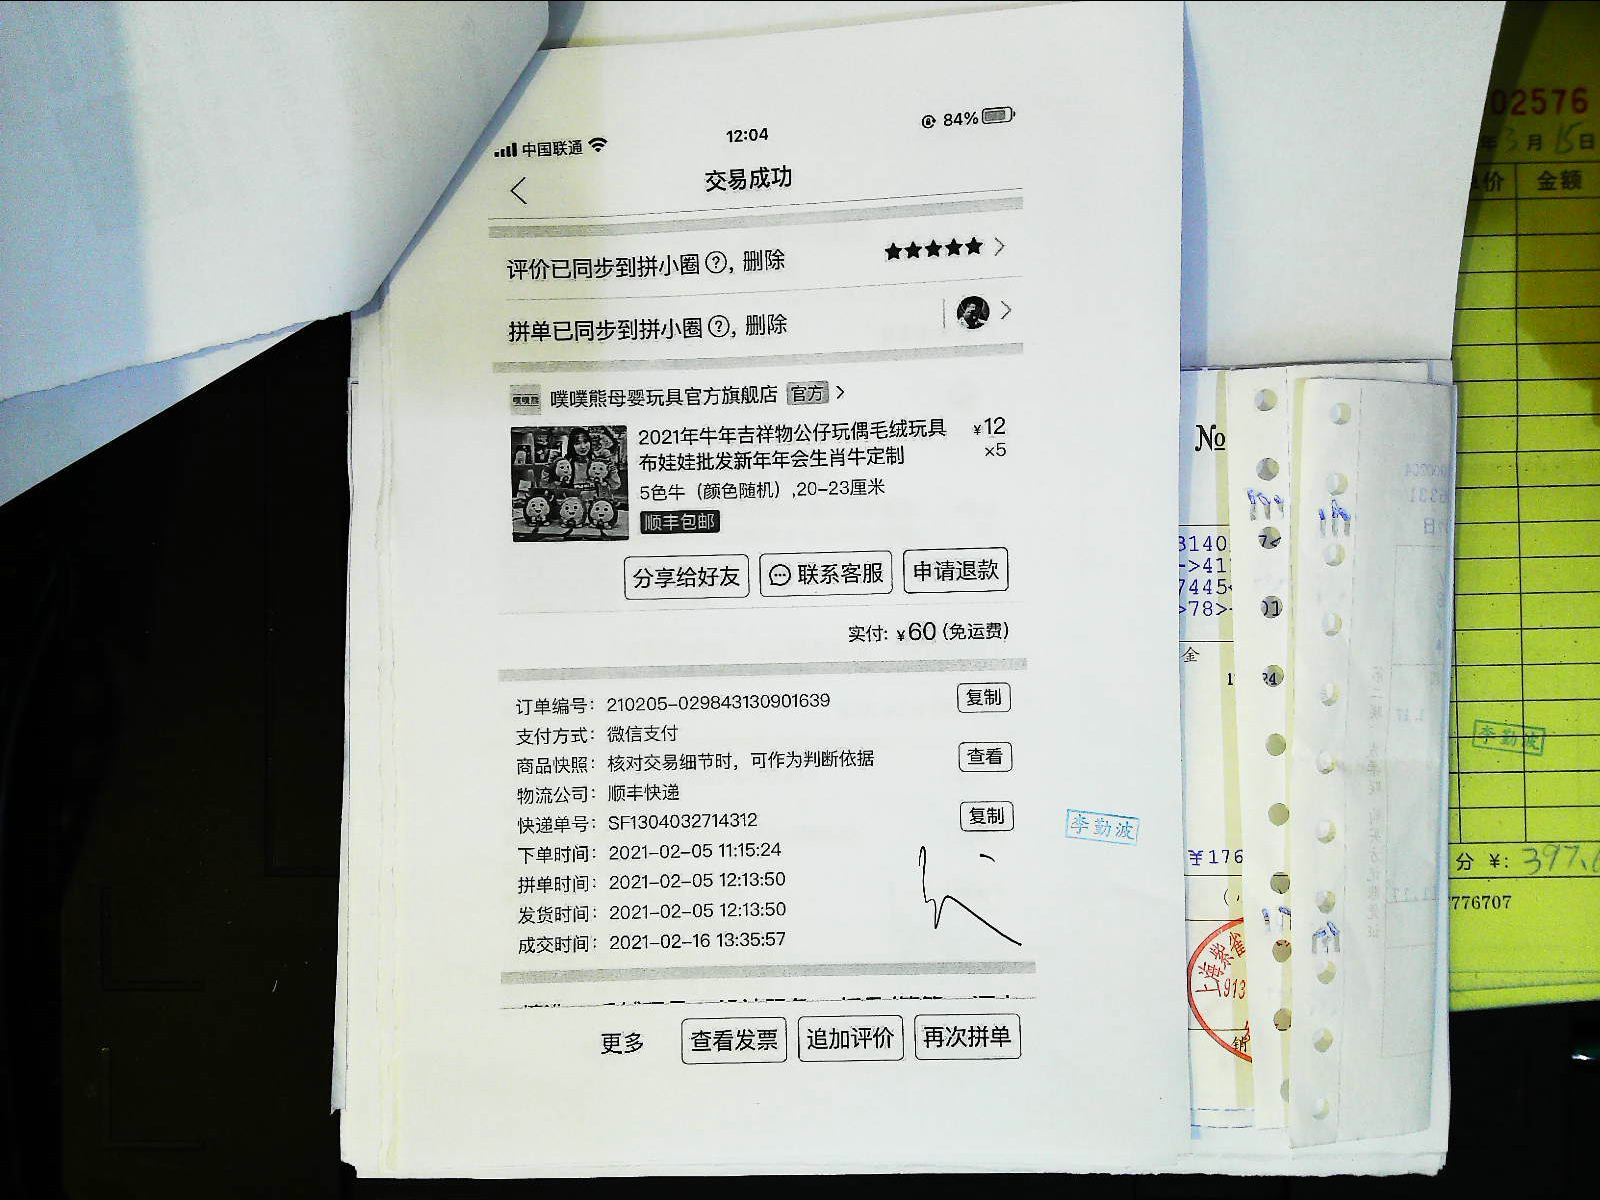 中国联通
12:04
84%
交易成功
评价已同步到拼小圈?, 删除
★★★★★
拼单已同步到拼小圈?, 删除
噗噗熊
噗噗熊母婴玩具官方旗舰店 官方
2021年牛年吉祥物公仔玩偶毛绒玩具 ¥12
布娃娃批发新年年会生肖牛定制 ×5
5色牛（颜色随机）,20-23厘米
顺丰包邮
分享给好友 联系客服 申请退款
实付: ¥60 (免运费)
订单编号: 210205-029843130901639 复制
支付方式: 微信支付
商品快照: 核对交易细节时, 可作为判断依据 查看
物流公司: 顺丰快递
快递单号: SF1304032714312 复制
下单时间: 2021-02-05 11:15:24
拼单时间: 2021-02-05 12:13:50
发货时间: 2021-02-05 12:13:50
成交时间: 2021-02-16 13:35:57
更多 查看发票 追加评价 再次拼单
李勤波
№
3140
->41
7445<
>78>-
01
金
24
¥176
上海紫雀
913
销
02576
年3月15日
价 金额
李勤波
分 ¥: 397.6
776707